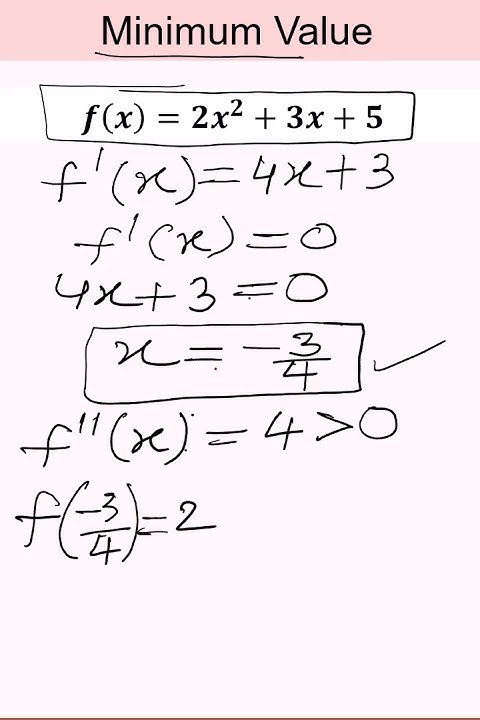 Minimum Value
f(x) = 2x² + 3x + 5
f'(x) = 4x + 3
f'(x) = 0
4x + 3 = 0
x = -3/4
f''(x) = 4 > 0
f(-3/4) = 2